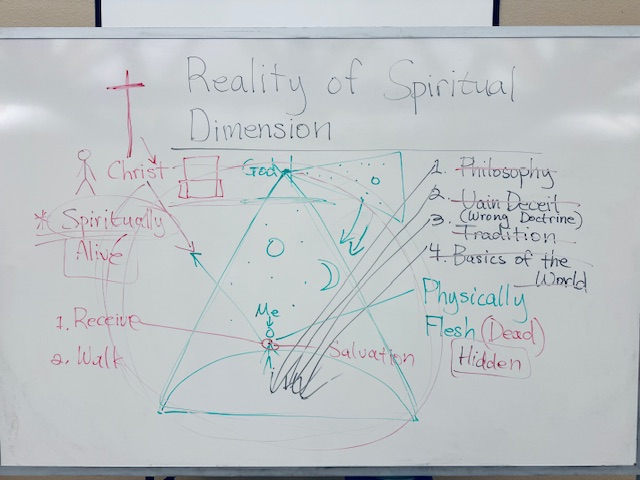 Reality of Spiritual
Dimension
Christ
God
* Spiritually
Alive
1. Receive
2. Walk
Me
Salvation
1. Philosophy
2. Vain Deceit
(Wrong Doctrine)
3. Tradition
4. Basics of the
World
Physically
Flesh (Dead)
Hidden